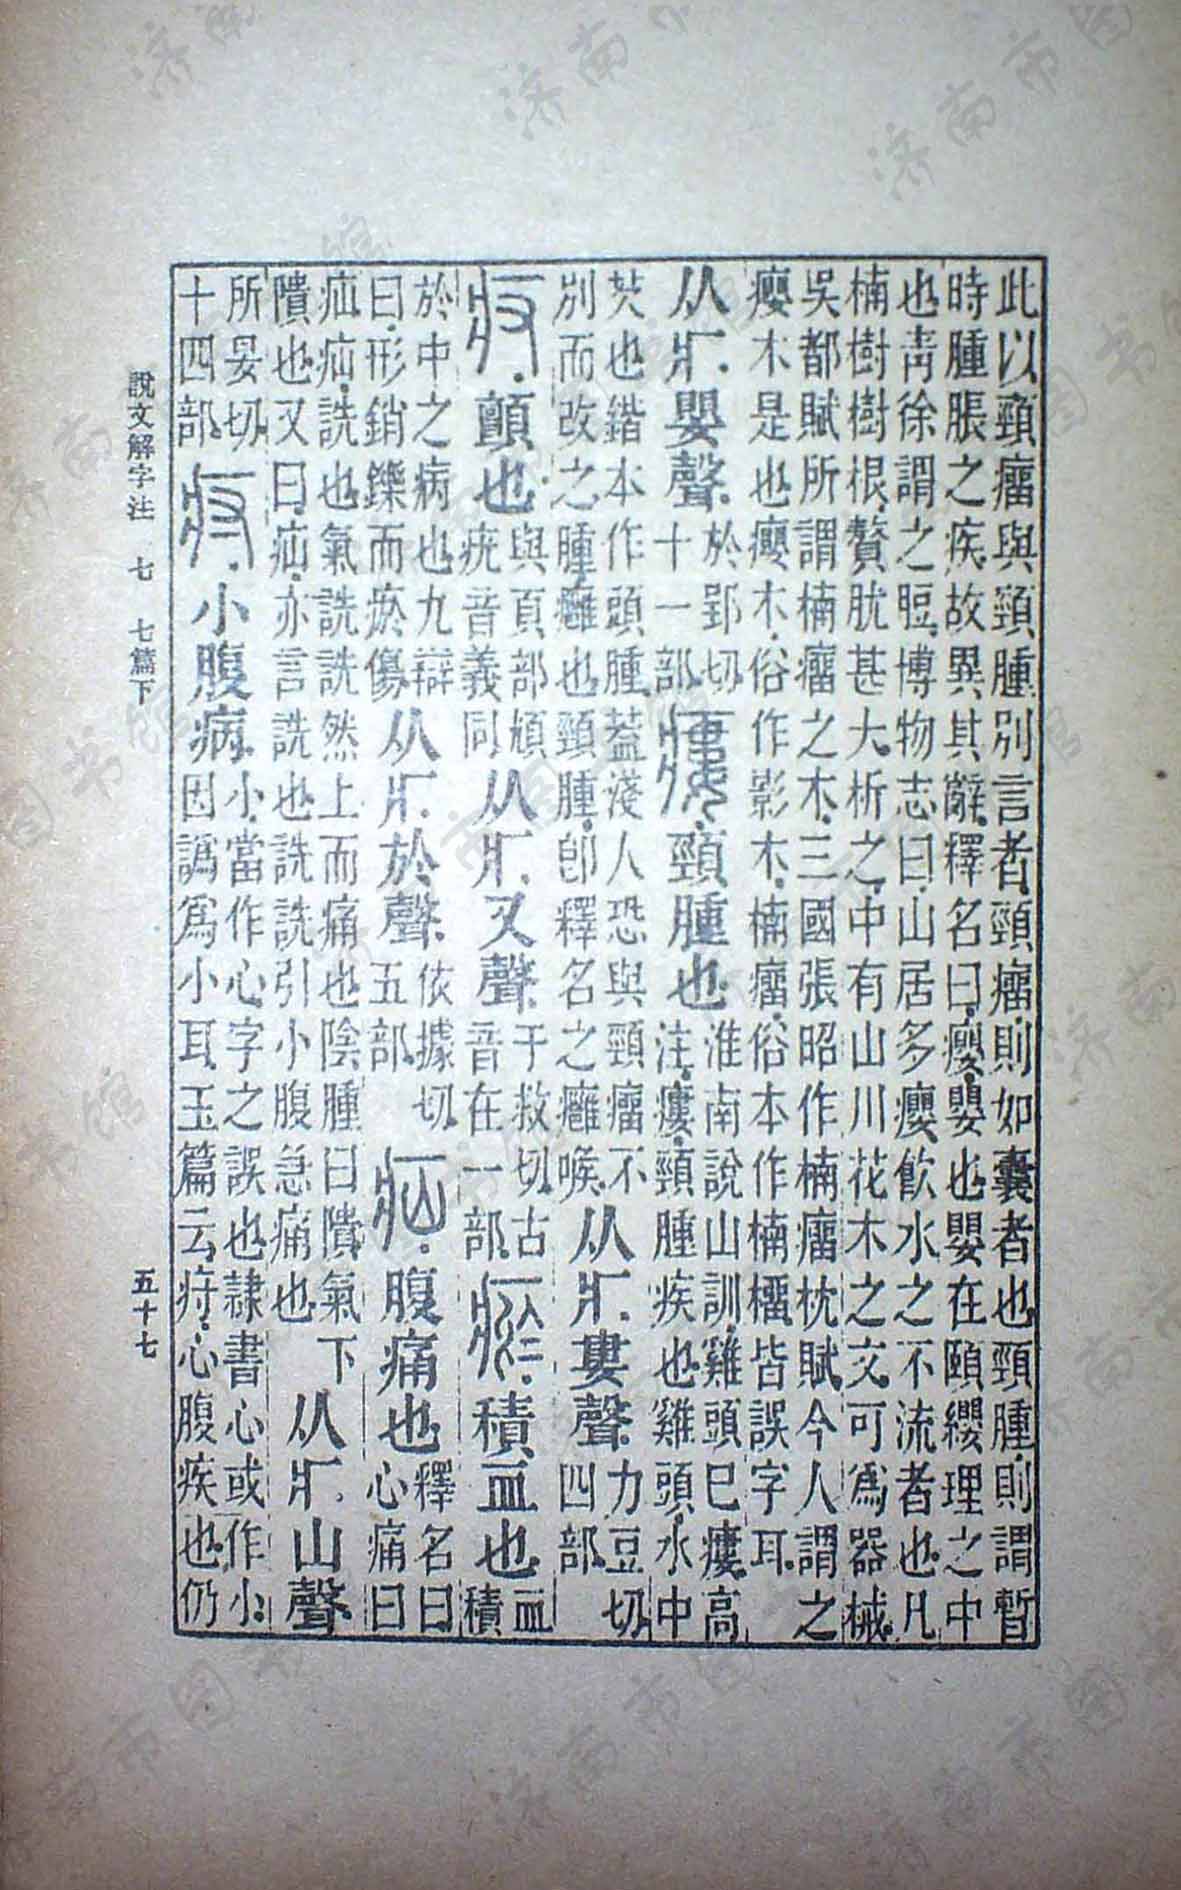 此以頸瘤與頸腫別言者頸瘤則如囊者也頸腫則謂暫
時腫脹之疾故異其辭釋名曰癭嬰也嬰在頤纓理之中
也青徐謂之脰博物志曰山居多癭飲水之不流者也凡
楠樹樹根贅肬甚大析之中有山川花木之文可爲器械
吳都賦所謂楠瘤之木三國張昭作楠瘤枕賦今人謂之
癭木是也癭木俗作影木楠瘤俗本作楠榴皆誤字耳
从疒嬰聲
於郢切
十一部
瘻頸腫也
淮南說山訓雞頭已瘻高
注瘻頸腫疾也雞頭水中
芡也鍇本作頭腫葢淺人恐與頸瘤不
別而改之腫癰也頸腫卽釋名之癰喉
从疒婁聲
力豆切
四部
𤴨顫也
與頁部頄
疣音義同
从疒又聲
于救切古
音在一部
瘀積血也
血積
於中之病也九辯
曰形銷鑠而瘀傷
从疒於聲
依據切
五部
疝腹痛也
釋名曰
心痛曰
疝疝詵也氣詵詵然上而痛也陰腫曰隤氣下
隤也又曰疝亦言詵也詵詵引小腹急痛也
从疒山聲
所晏切
十四部
疛小腹病
小當作心字之誤也隷書心或作小
因譌爲小耳玉篇云疛心腹疾也仍
說文解字注 七 七篇下
五十七
济南市图书馆